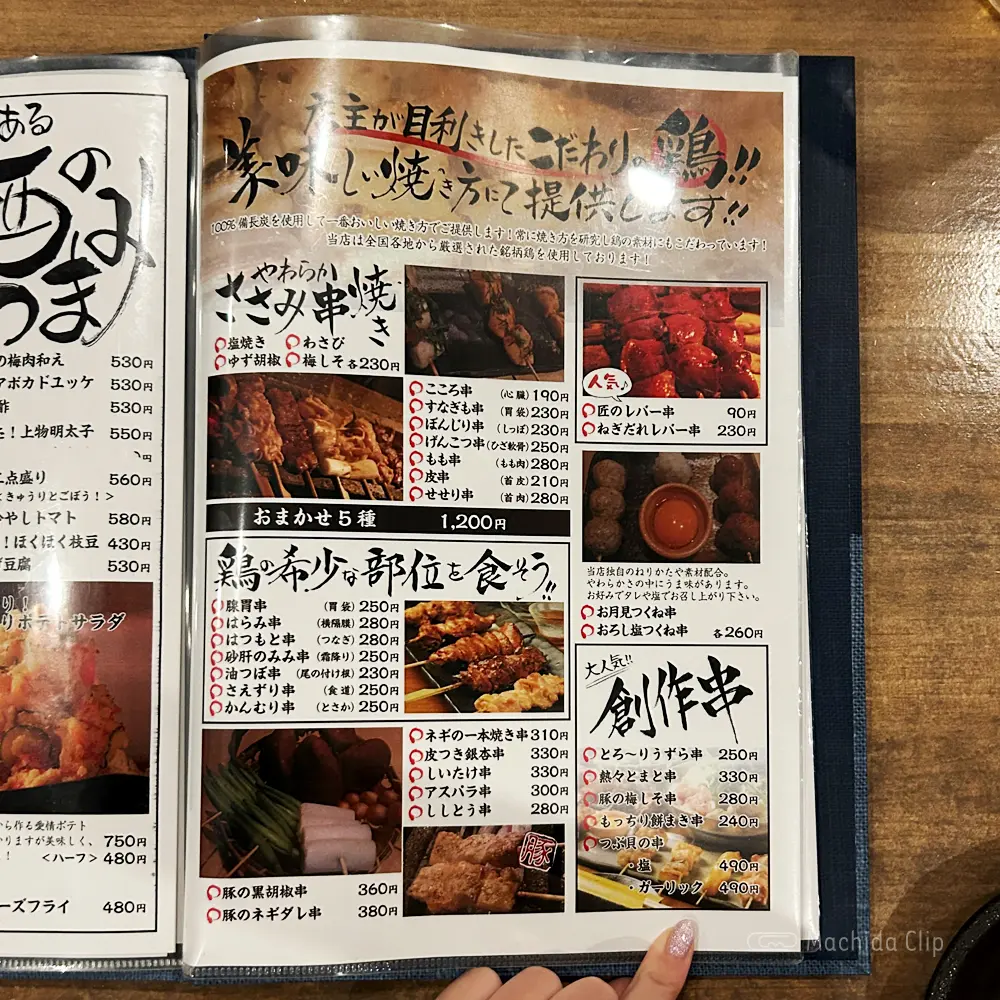 ある
酒の
つまみ
の梅肉和え 530円
アボカドユッケ 530円
酢 530円
た！上物明太子 550円
二点盛り 560円
ときゅうりとごぼう！＞
やしトマト 580円
！ほくほく枝豆 430円
豆腐 530円
り！
りポテトサラダ
から作る愛情ポテト
かりますが美味しく、 750円
！ ＜ハーフ＞ 480円
ーズフライ 480円
店主が目利きしたこだわりの鶏!!
美味しい焼き方にて提供します!!
100%備長炭を使用して一番おいしい焼き方でご提供します！常に焼き方を研究し鶏の素材にもこだわっています！
当店は全国各地から厳選された銘柄鶏を使用しております！
やわらか
ささみ串焼き
塩焼き わさび
ゆず胡椒 梅しそ 各230円
こころ串 (心臓) 190円
すなぎも串 (胃袋) 230円
ぼんじり串 (しっぽ) 230円
げんこつ串 (ひざ軟骨) 230円
もも串 (もも肉) 280円
皮串 (首皮) 210円
せせり串 (首肉) 280円
おまかせ5種 1,200円
鶏の希少な部位を食そう!!
腺胃串 (胃袋) 250円
はらみ串 (横隔膜) 280円
はつもと串 (つなぎ) 280円
砂肝のみみ串 (霜降り) 250円
油つぼ串 (尾の付け根) 230円
さえずり串 (食道) 250円
かんむり串 (とさか) 250円
ネギの一本焼き串 310円
皮つき銀杏串 330円
しいたけ串 330円
アスパラ串 300円
ししとう串 280円
豚
豚の黒胡椒串 360円
豚のネギダレ串 380円
人気♪
匠のレバー串 90円
ねぎだれレバー串 230円
当店独自のねりかたや素材配合。
やわらかさの中にうま味があります。
お好みでタレや塩でお召し上がり下さい。
お月見つくね串
おろし塩つくね串 各260円
大人気!!
創作串
とろ〜りうずら串 250円
熱々とまと串 330円
豚の梅しそ串 280円
もっちり餅まき串 240円
つぶ貝の串
・塩 490円
・ガーリック 490円
Machida Clip